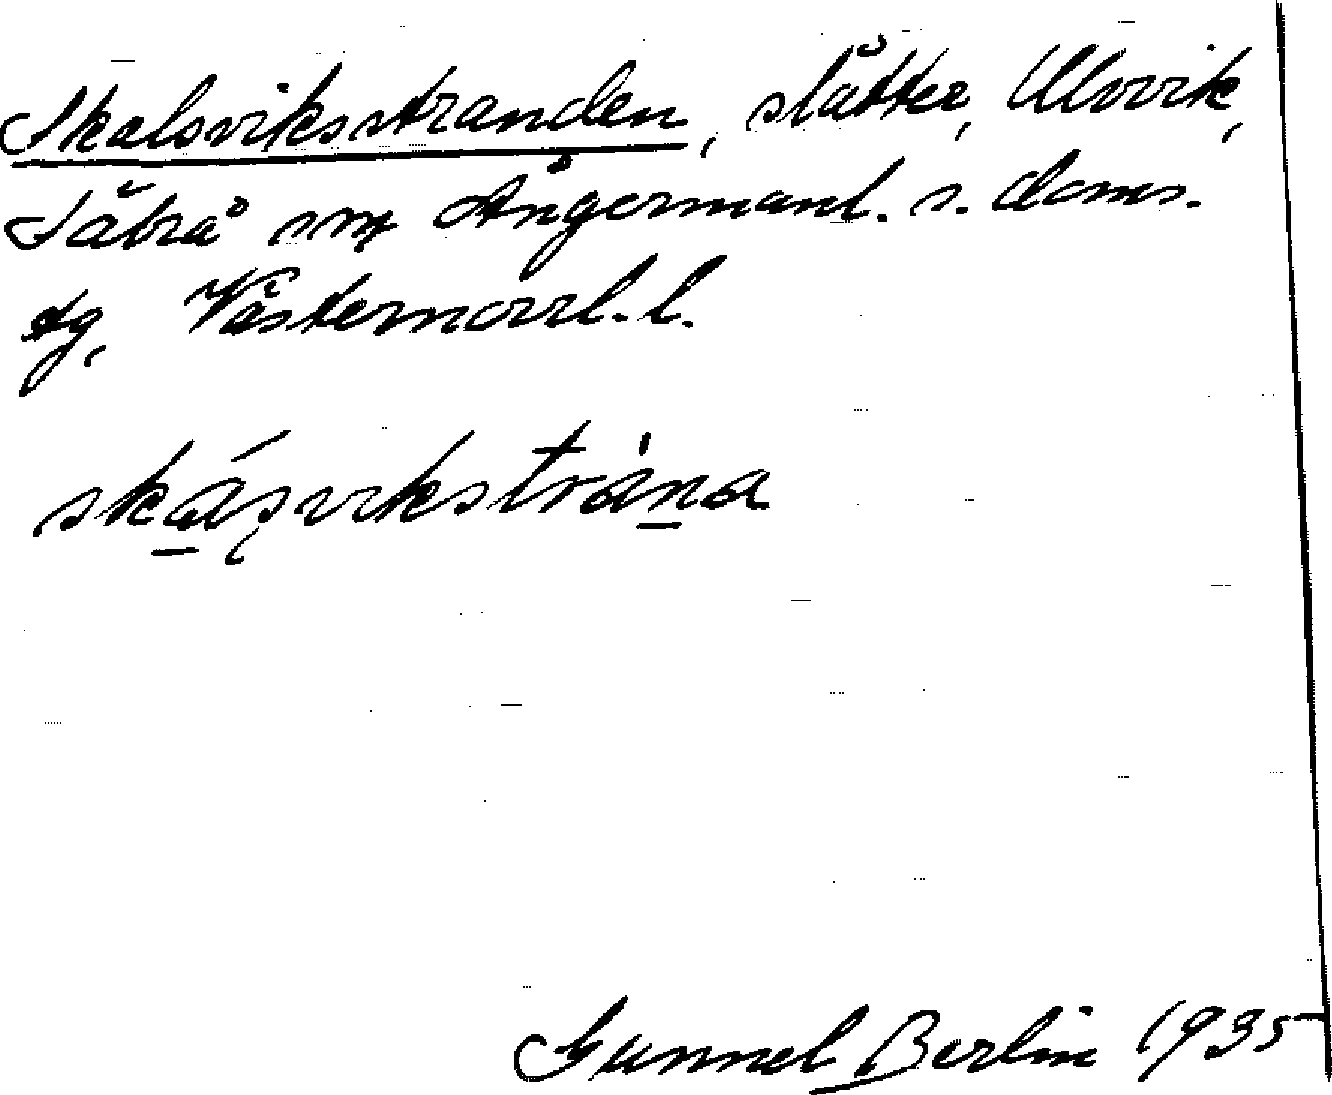 Skalsviksstranden, slåtter, Ulvvik,
Säbrå sn, Ångermanl. s. doms.
sg, Västernorrl. l.
skás̨vikstràna
Gunnel Berlin 1935